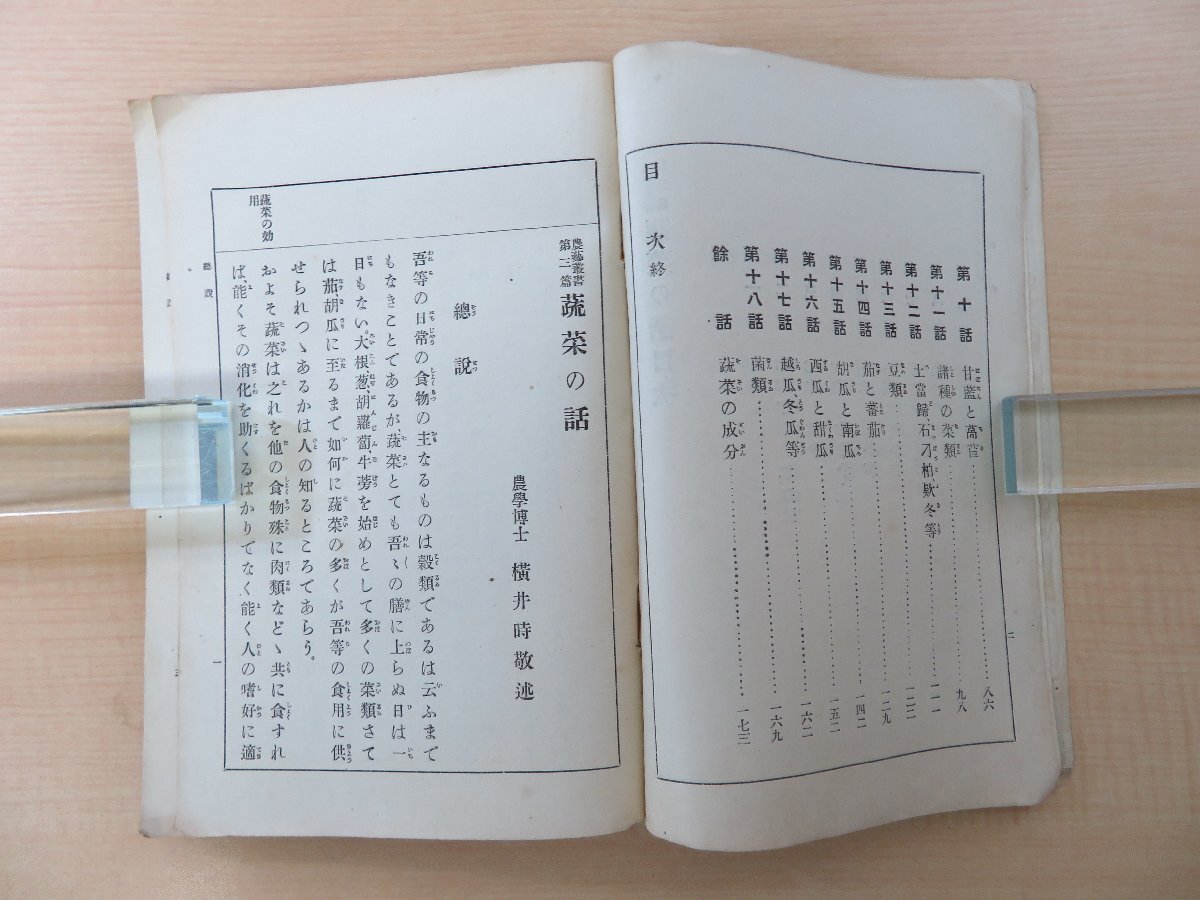 第十話 甘藍と萵苣 八六
第十一話 諸種の菜類 九八
第十二話 土當歸石刁柏欵冬等 一一一
第十三話 豆類 一二二
第十四話 茄と蕃茄 一二九
第十五話 胡瓜と南瓜 一四二
第十六話 西瓜と甜瓜 一五二
第十七話 越瓜冬瓜等 一六二
第十八話 菌類 一六九
餘話 蔬菜の成分 一七三
目次終
二
農藝叢書
第三篇
蔬菜の話
農學博士 横井時敬述
總說
吾等の日常の食物の主なるものは穀類であるは云ふまで
もなきことであるが、蔬菜とても吾〻の膳に上らぬ日は一
日もない。大根葱、胡蘿蔔、牛蒡を始めとして多くの菜類さて
は茄胡瓜に至るまで如何に蔬菜の多くが吾等の食用に供
せられつゝあるかは人の知るところであらう。
蔬菜の効
用
およそ蔬菜は之れを他の食物殊に肉類などゝ共に食すれ
ば、能くその消化を助くるばかりでなく能く人の嗜好に適
總說
一